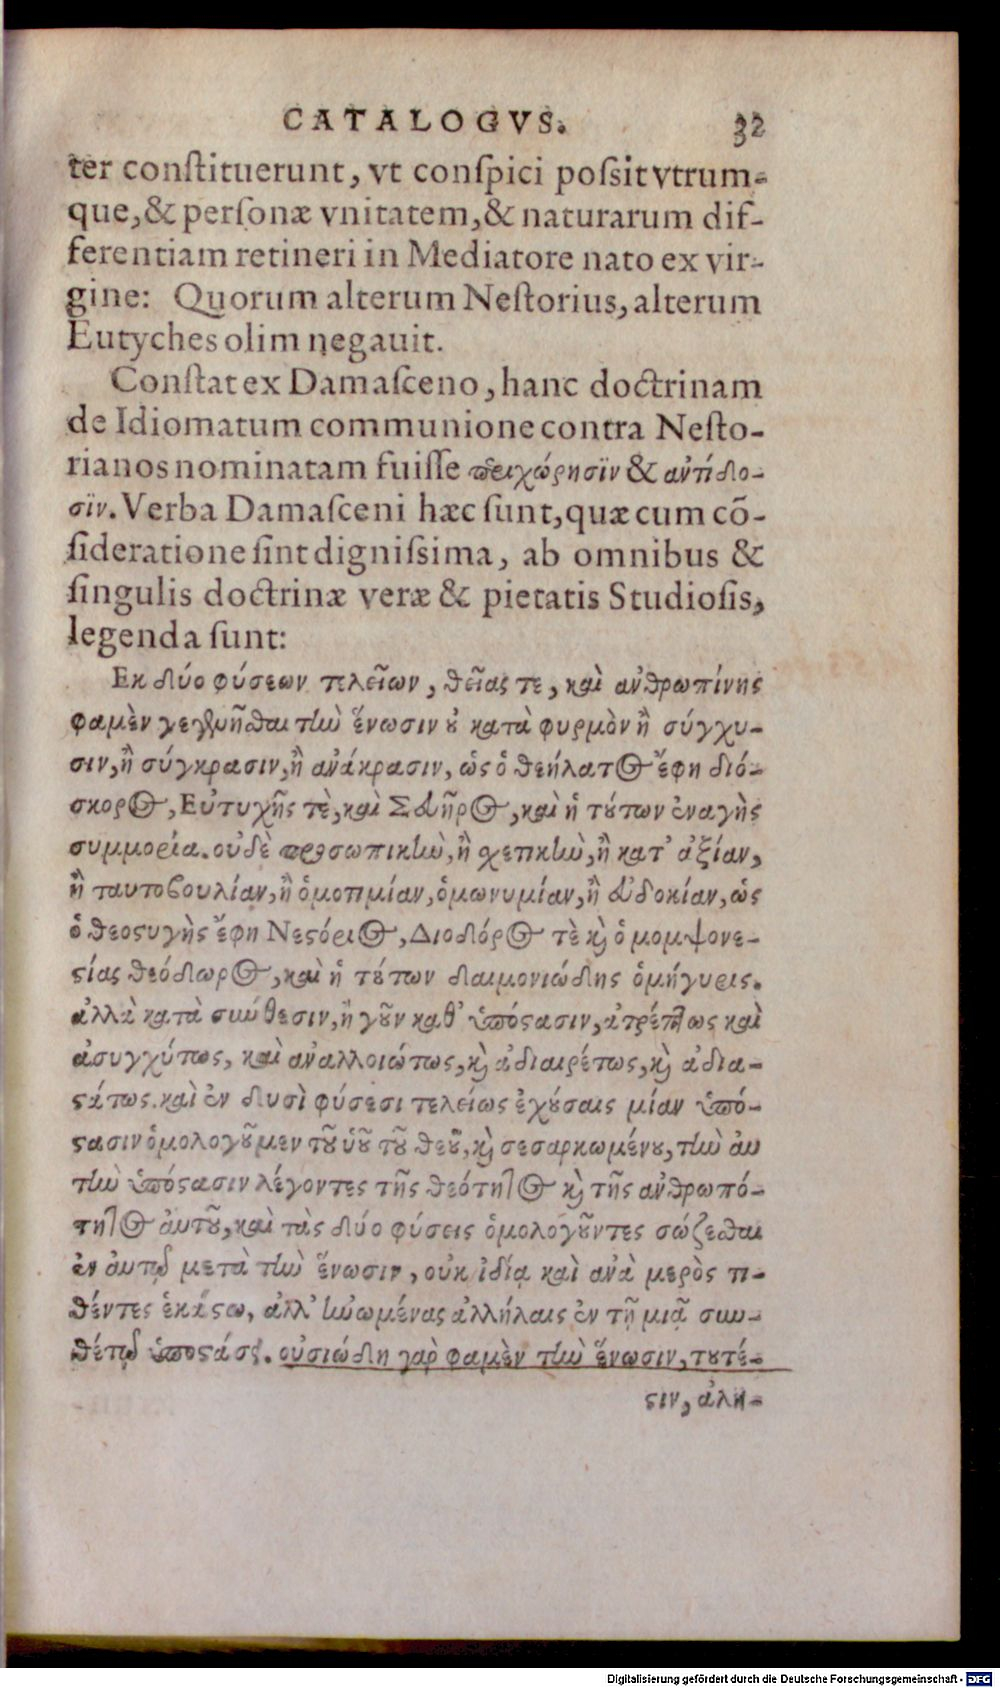 CATALOGVS. 32
ter conſtituerunt, vt conſpici poſsit vtrum-
que, & perſonæ vnitatem, & naturarum dif-
ferentiam retineri in Mediatore nato ex vir-
gine: Quorum alterum Neſtorius, alterum
Eutyches olim negauit.
Conſtat ex Damaſceno, hanc doctrinam
de Idiomatum communione contra Neſto-
rianos nominatam fuiſſe περιχώρησϊν & ἀντίδο-
σϊν. Verba Damaſceni hæc ſunt, quæ cum cõ-
ſideratione ſint digniſsima, ab omnibus &
ſingulis doctrinæ veræ & pietatis Studioſis,
legenda ſunt:
Εκ δύο φύσεων τελείων, θείας τε, καὶ ἀνθρωπίνης
φαμὲν γεγενῆσθαι τὴν ἕνωσιν ȣ κατὰ φυρμὸν ἢ σύγχυ-
σιν, ἢ σύγκρασιν, ἢ ἀνάκρασιν, ὡς ὁ θεήλατος ἔφη διό-
σκορος, Εὐτυχῆς τὲ, καὶ Σευῆρος, καὶ ἡ τȣ́των ἐναγὴς
συμμορία. οὐδὲ προσωπικὴν, ἢ σχετικὴν, ἢ κατ᾽ ἀξίαν,
ἢ ταυτοβουλίαν, ἢ ὁμοτιμίαν, ὁμωνυμίαν, ἢ εὐδοκίαν, ὡς
ὁ θεοςυγὴς ἔφη Νεςόριος, Διοδόρος τὲ κὶ ὁ μομψουε-
ςίας θεόδωρος, καὶ ἡ τȣ́των δαιμονιώδης ὁμήγυρις.
ἀλλὰ κατὰ σύνθεσιν, ἤ γȣ͂ν καθ᾽ ὑπόςασιν, ἀτρέπτως καὶ
ἀσυγχύτως, καὶ ἀναλλοιώτως, κὶ ἀδιαιρέτως, κὶ ἀδια-
ςάτως. καὶ ἐν δυσὶ φύσεσι τελείως ἐχȣ́σαις μίαν ὑπό-
ςασιν ὁμολογȣ͂μεν τȣ͂ ὑȣ͂ τȣ͂ θεȣ͂, κὶ σεσαρκωμένȣ, τὴν ἀυ
τὴν ὑπόςασιν λέγοντες τῆς θεότητος κὶ τῆς ἀνθρωπό-
τητος ἀυτȣ͂, καὶ τὰς δύο φύσεις ὁμολογȣ͂ντες σώζεσθαι
ἐν ἀυτῷ μετὰ τὴν ἕνωσιν, οὐκ ἰδίᾳ καὶ ἀνὰ μερὸς τι-
θέντες ἑκάςω, ἀλλ᾽ ἡνωμένας ἀλλήλαις ἐν τῇ μιᾷ συν-
θέτῳ ὑποςάσει. οὐσιώδη γὰρ φαμὲν τὴν ἕνωσιν, τȣτέ-
ςιν, ἀλη-
Digitalisierung gefördert durch die Deutsche Forschungsgemeinschaft - DFG